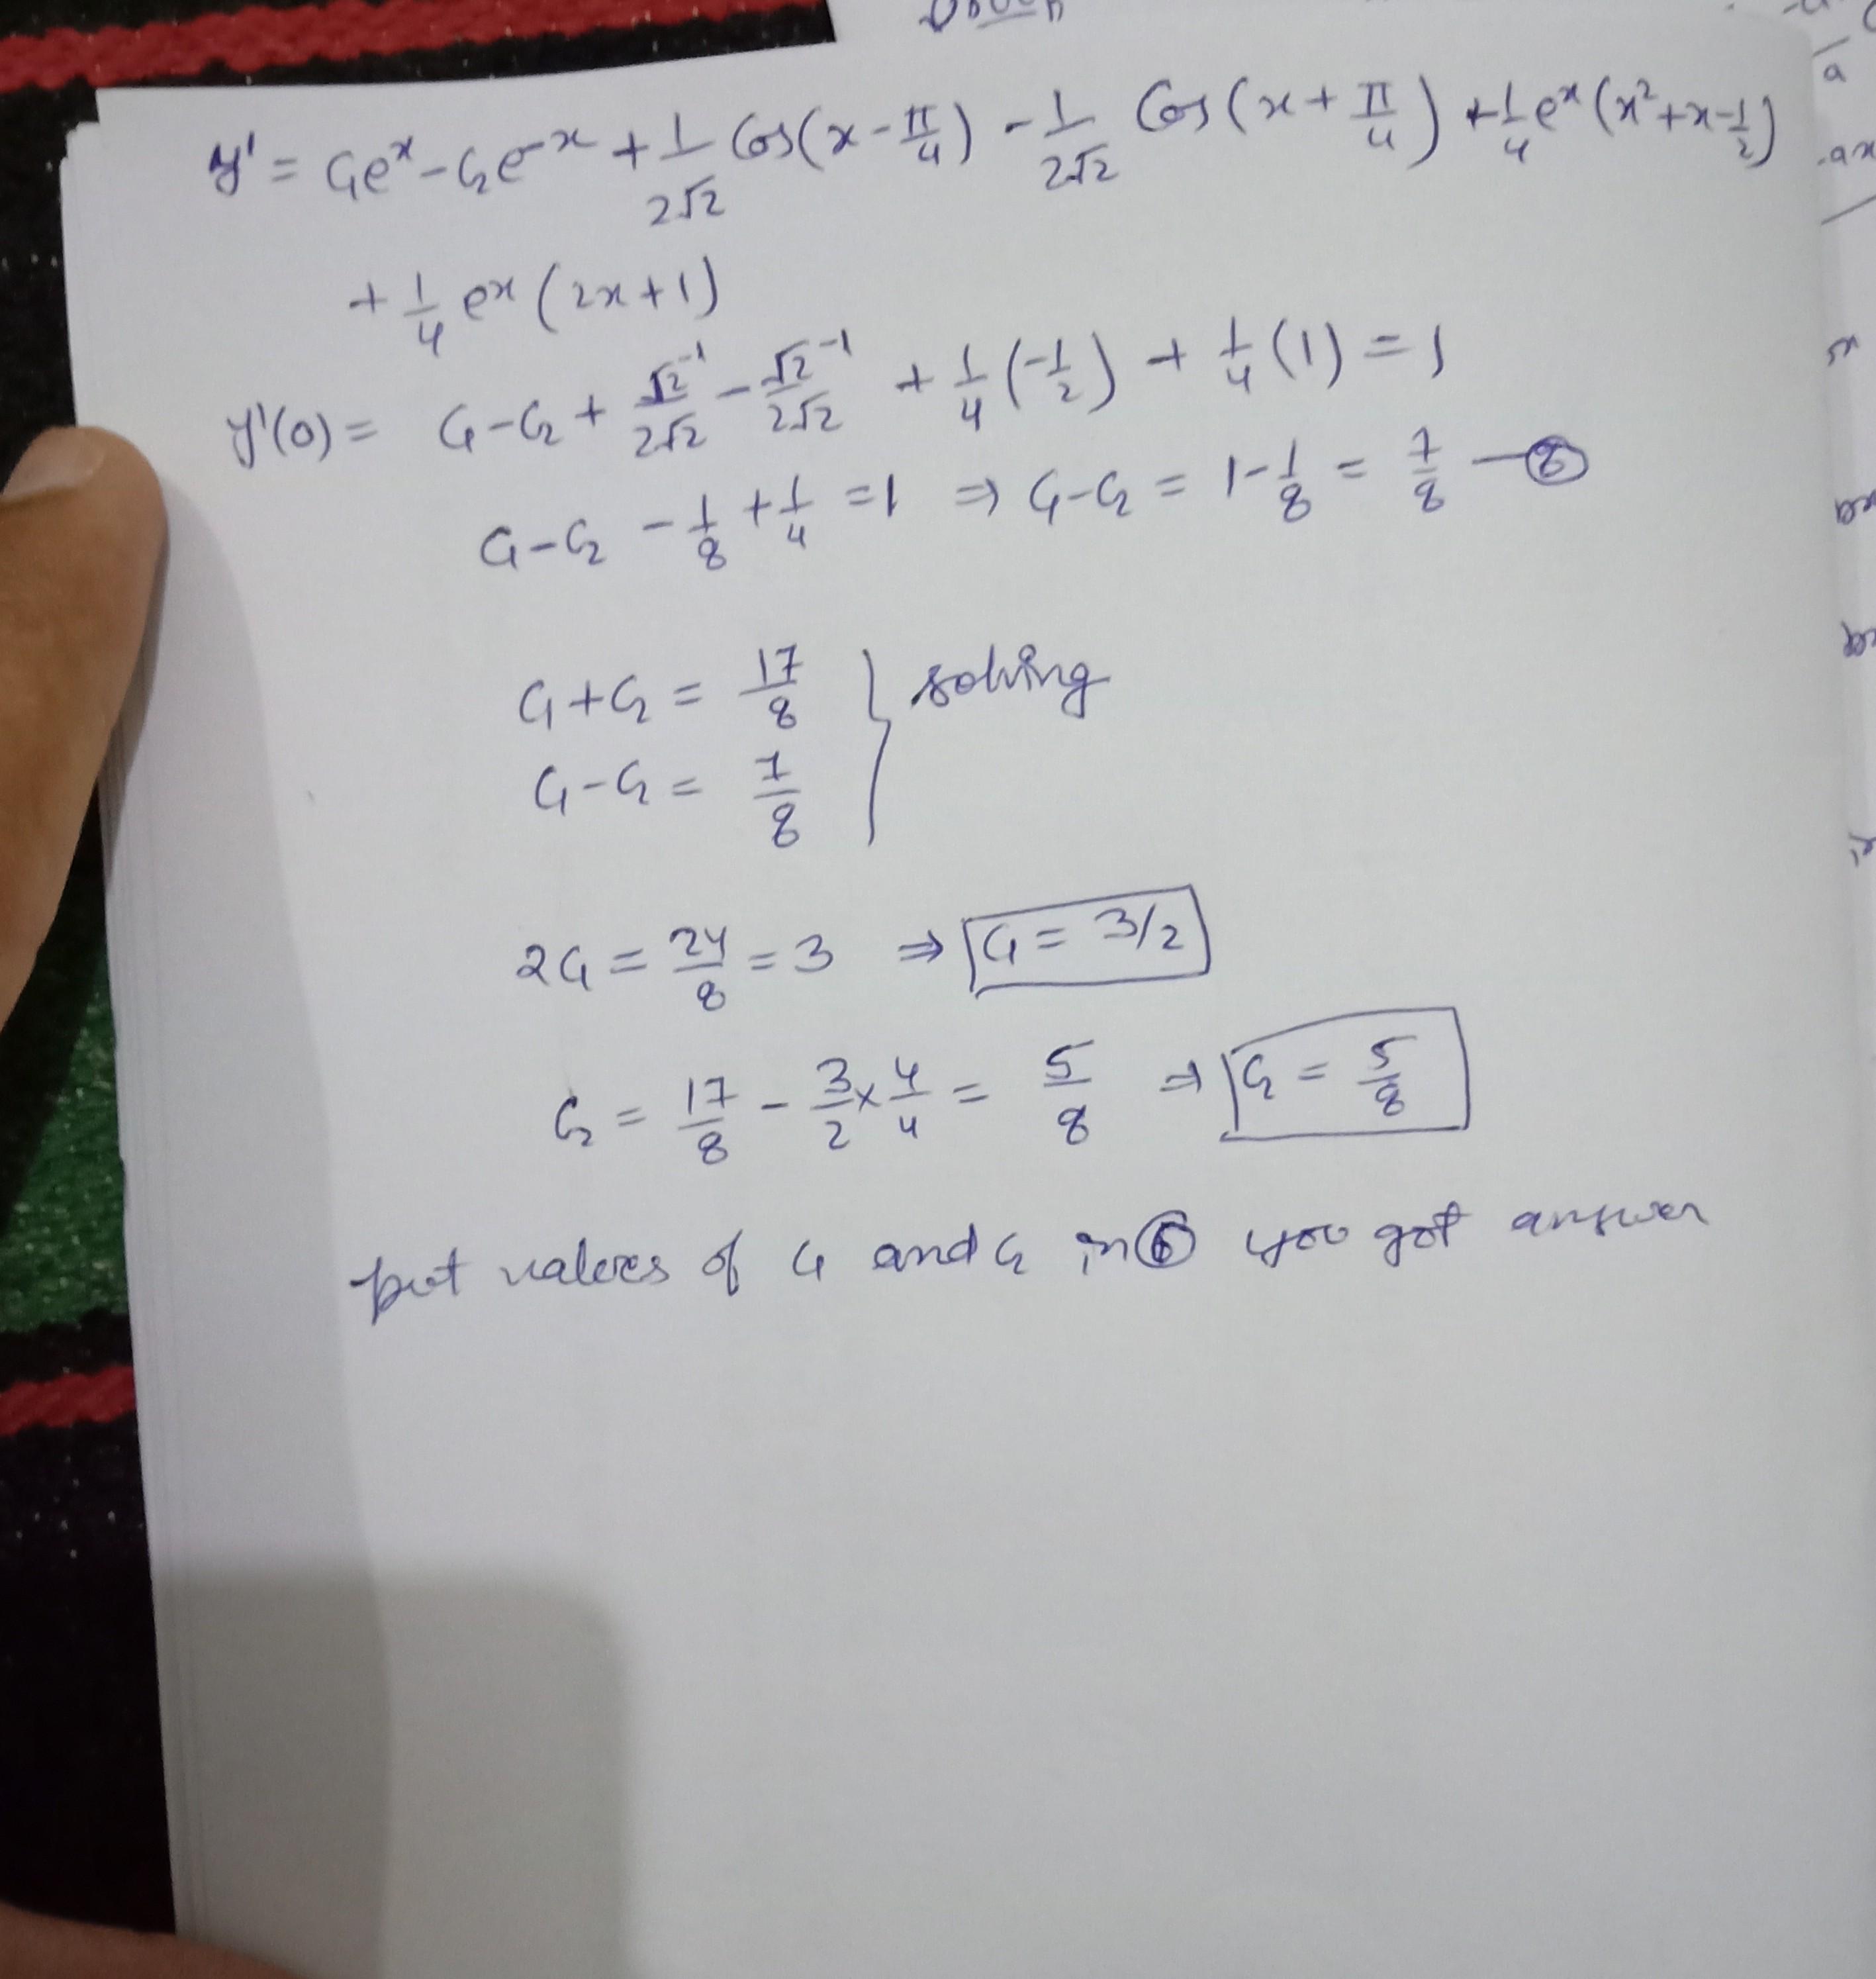 y' = C₁eˣ - C₂e⁻ˣ + 1/2√2 Cos(x - π/4) - 1/2√2 Cos(x + π/4) + 1/4 eˣ (x² + x - 1/2)
+ 1/4 eˣ (2x + 1)
y'(0) = C₁ - C₂ + √2⁻¹/2√2 - √2⁻¹/2√2 + 1/4 (-1/2) + 1/4 (1) = 1
C₁ - C₂ - 1/8 + 1/4 = 1 ⇒ C₁ - C₂ = 1 - 1/8 = 7/8 — ⑧
C₁ + C₂ = 17/8 } solving
C₁ - C₂ = 7/8
2C₁ = 24/8 = 3 ⇒ C₁ = 3/2
C₂ = 17/8 - 3/2 × 4/4 = 5/8 ⇒ C₂ = 5/8
put values of C₁ and C₂ in ⑥ you got answer